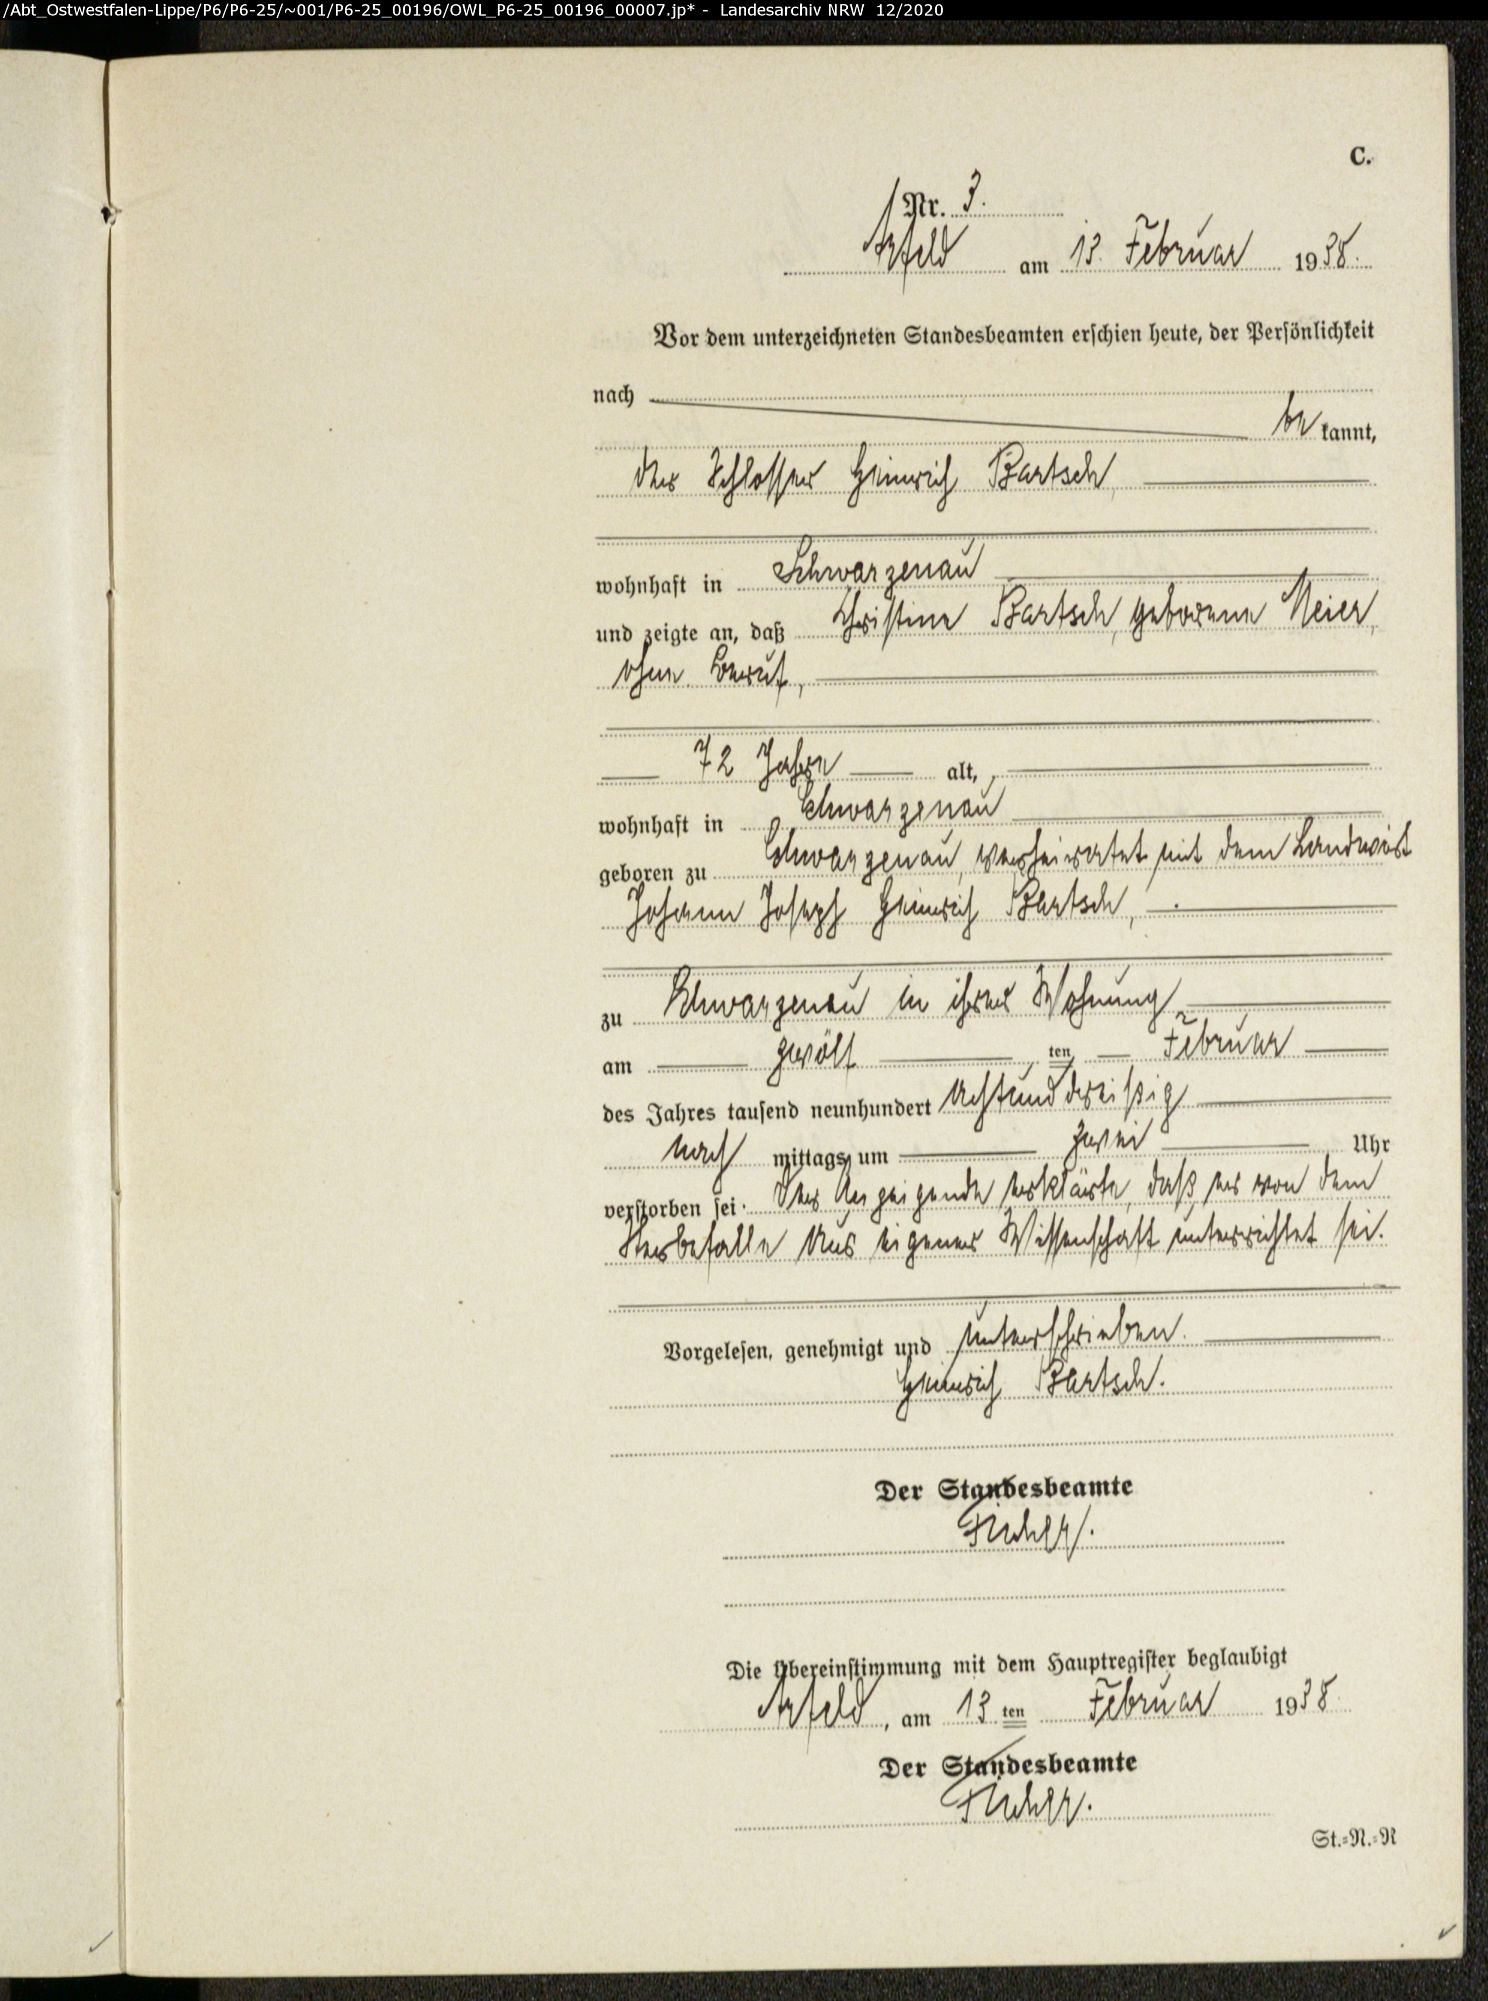 /Abt_Ostwestfalen-Lippe/P6/P6-25/~001/P6-25_00196/OWL_P6-25_00196_00007.jp* - Landesarchiv NRW 12/2020
C.
Nr. 3.
Arfeld am 13. Februar 1938.
Vor dem unterzeichneten Standesbeamten erschien heute, der Persönlichkeit
nach
be kannt,
der Schlosser Heinrich Bartsch,
wohnhaft in Schwarzenau
und zeigte an, daß Christine Bartsch, geborene Meier,
ohne Beruf,
72 Jahre alt,
wohnhaft in Schwarzenau
geboren zu Schwarzenau, verheiratet mit dem Landwirt
Johann Joseph Heinrich Bartsch,
zu Schwarzenau in ihrer Wohnung
am zwölf ten Februar
des Jahres tausend neunhundert achtunddreißig
nach mittags um zwei Uhr
verstorben sei. Der Anzeigende erklärte, daß er von dem
Sterbefalle aus eigener Wissenschaft unterrichtet sei.
Vorgelesen, genehmigt und unterschrieben.
Heinrich Bartsch.
Der Standesbeamte
Die Übereinstimmung mit dem Hauptregister beglaubigt
Arfeld, am 13 ten Februar 1938.
Der Standesbeamte
St.=N.=N